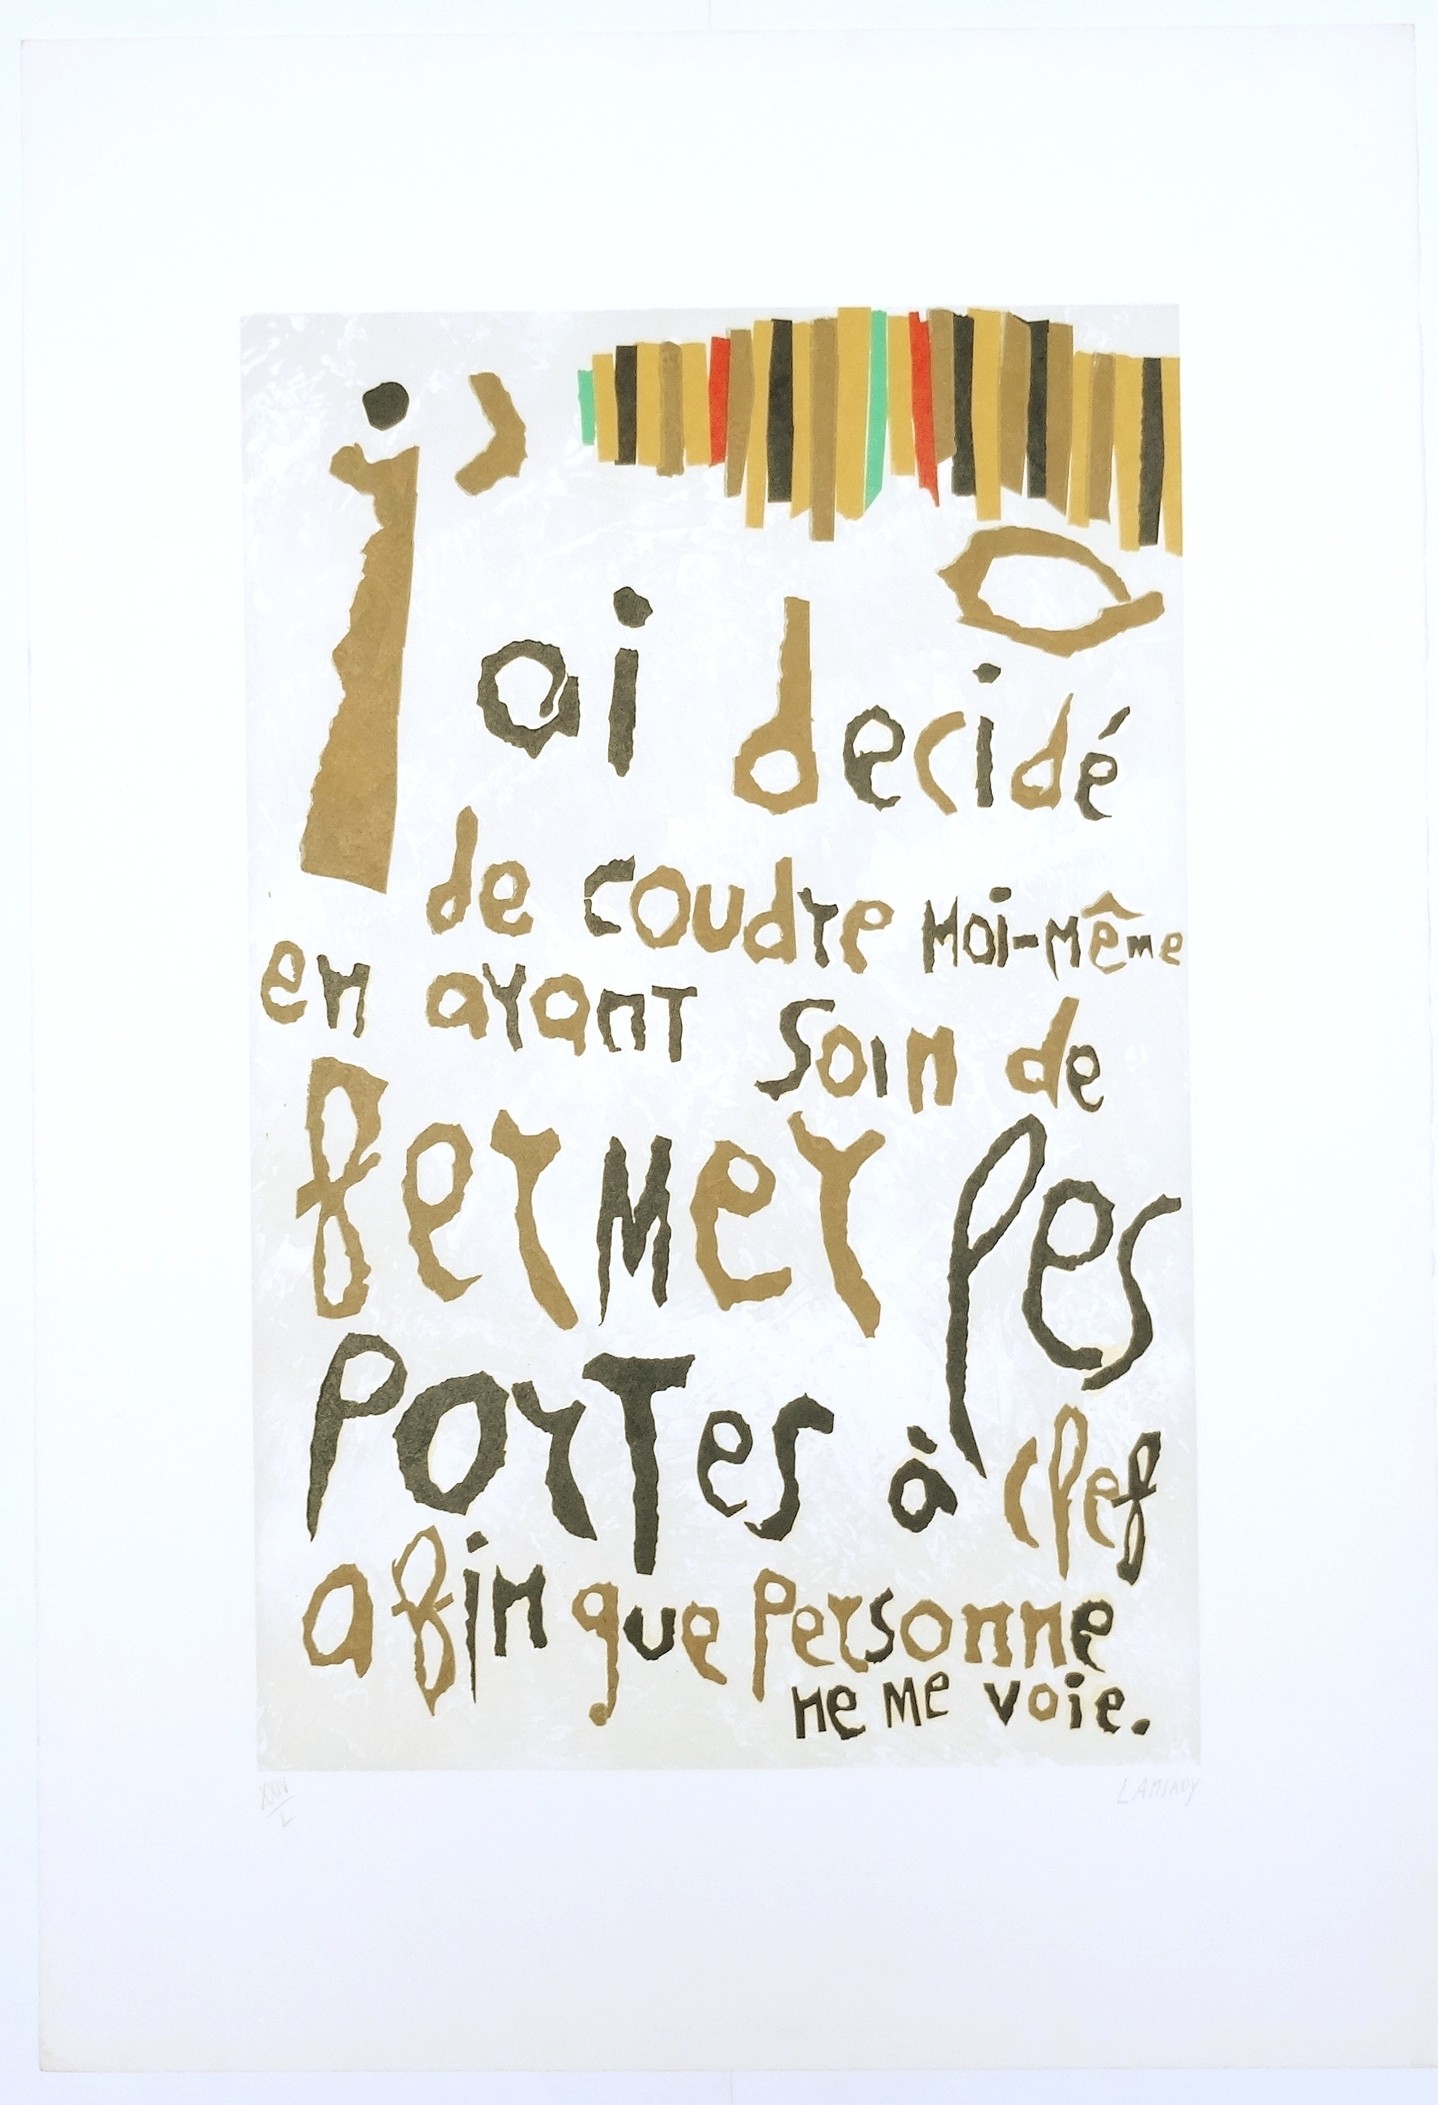 j'ai decidé
de coudre moi-même
en ayant soin de
fermer les
portes à clef
afin que personne
ne me voie.
XXIV/L
LANSKOY